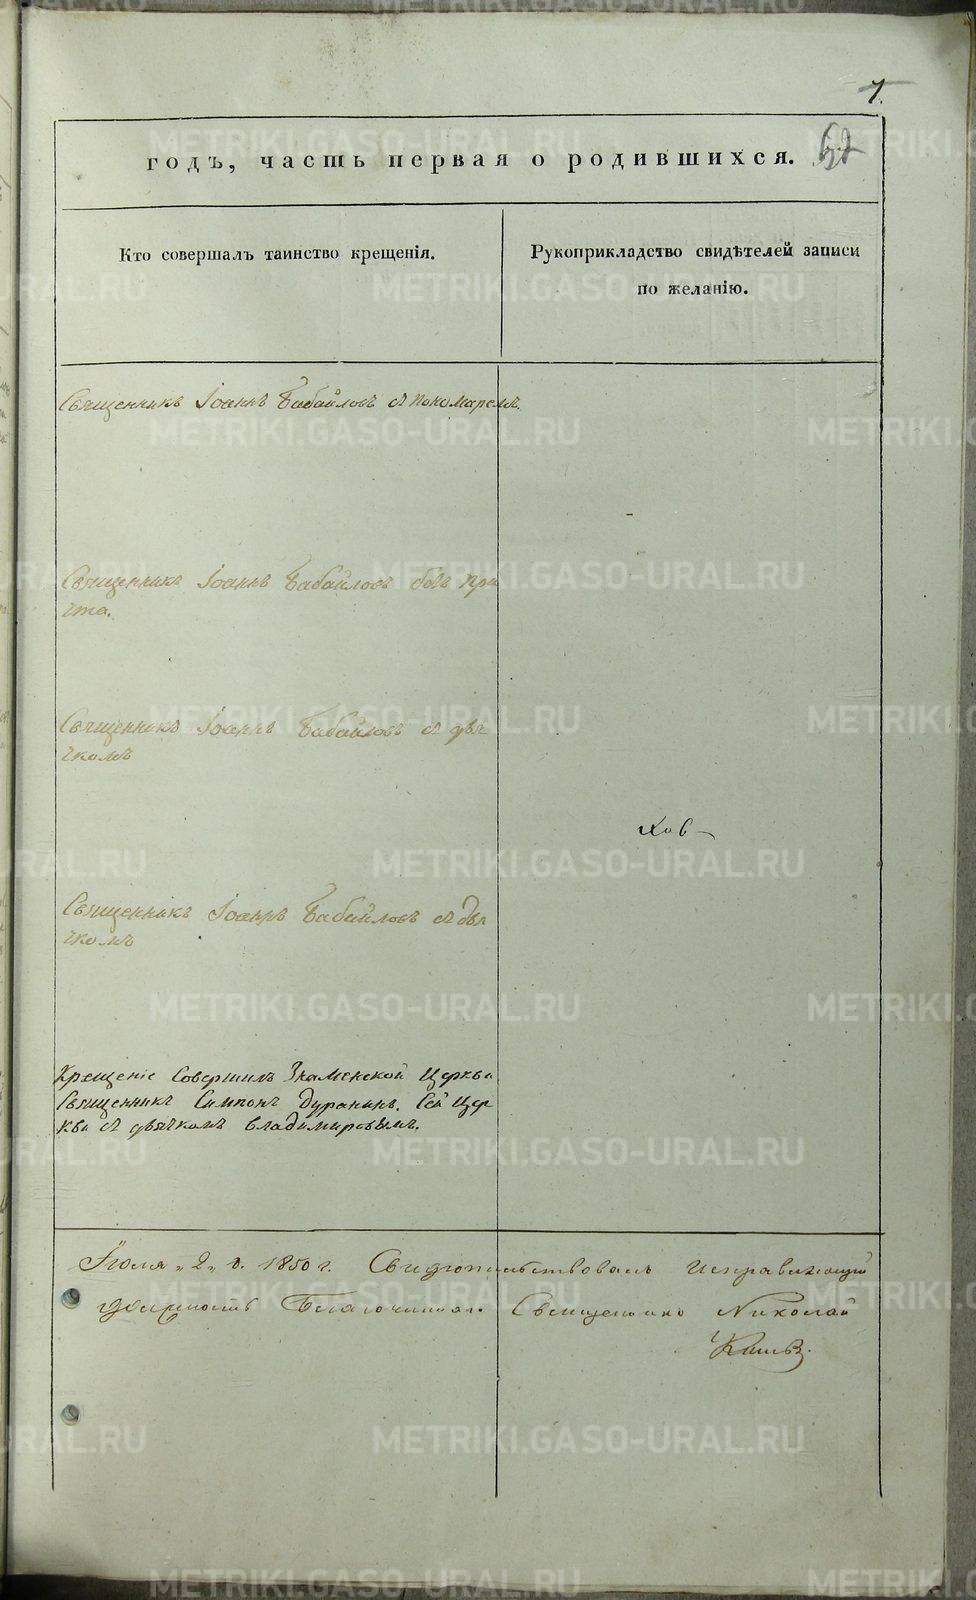 7.
годъ, часть первая о родившихся.
Кто совершалъ таинство крещенія.
Рукоприкладство свидѣтелей записи
по желанію.
Священникъ Іоаннъ Бабайловъ съ пономаремъ.
Священникъ Іоаннъ Бабайловъ безъ при
чта.
Священникъ Іоаннъ Бабайловъ съ дья
чкомъ
Священникъ Іоаннъ Бабайловъ съ дья
чкомъ
Крещеніе совершилъ Знаменской Церкви
Священникъ Симеонъ Дуранинъ. Сей Цер
кви съ дьячкомъ Владимировымъ.
Іюля „2„ д. 1850 г. Свидетельствовалъ исправляющій
должность Благочиннаго Священникъ Николай
METRIKI.GASO-URAL.RU